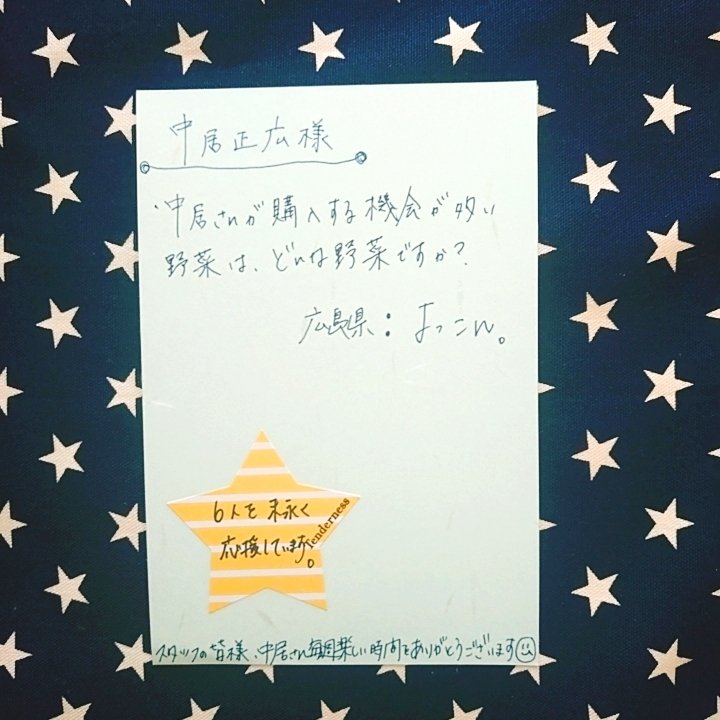 中居正広様
・中居さんが購入する機会が多い
野菜は、どんな野菜ですか？
広島県：よっこん。
6人を末永く
応援しています。
Tenderness
スタッフの皆様、中居さん毎週楽しい時間をありがとうございます